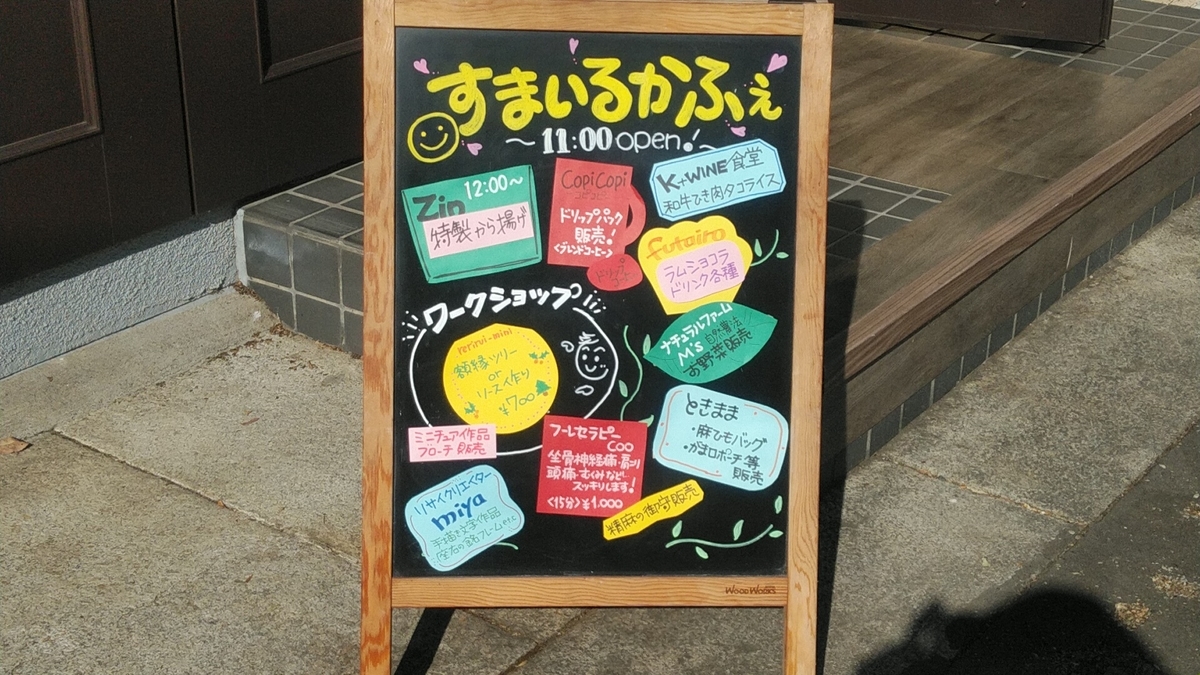 すまいるかふぇ
～11:00 open!～
Zip 12:00～
特製から揚げ
CopiCopi
コピコピ
ドリップパック
販売!
<ブレンドコーヒー>
ドリップ
コーヒー
K+WINE食堂
和牛ひき肉タコライス
futairo
ラムショコラ
ドリンク各種
ナチュラルファーム
M's 自然農法
お野菜販売
ワークショップ
rerirui-mini
額縁ツリー
or
リース作り
¥700
ミニチュア作品
ブローチ販売
フーレセラピー
COO
坐骨神経痛・肩こり
頭痛・むくみなど…
スッキリします!
<15分>¥1,000
ときまま
・麻ひもバッグ
・がま口ポーチ等
販売
リサイクリエイター
miya
手描き文字作品
座右の銘フレームetc
精麻の御守販売
WOOD WORKS